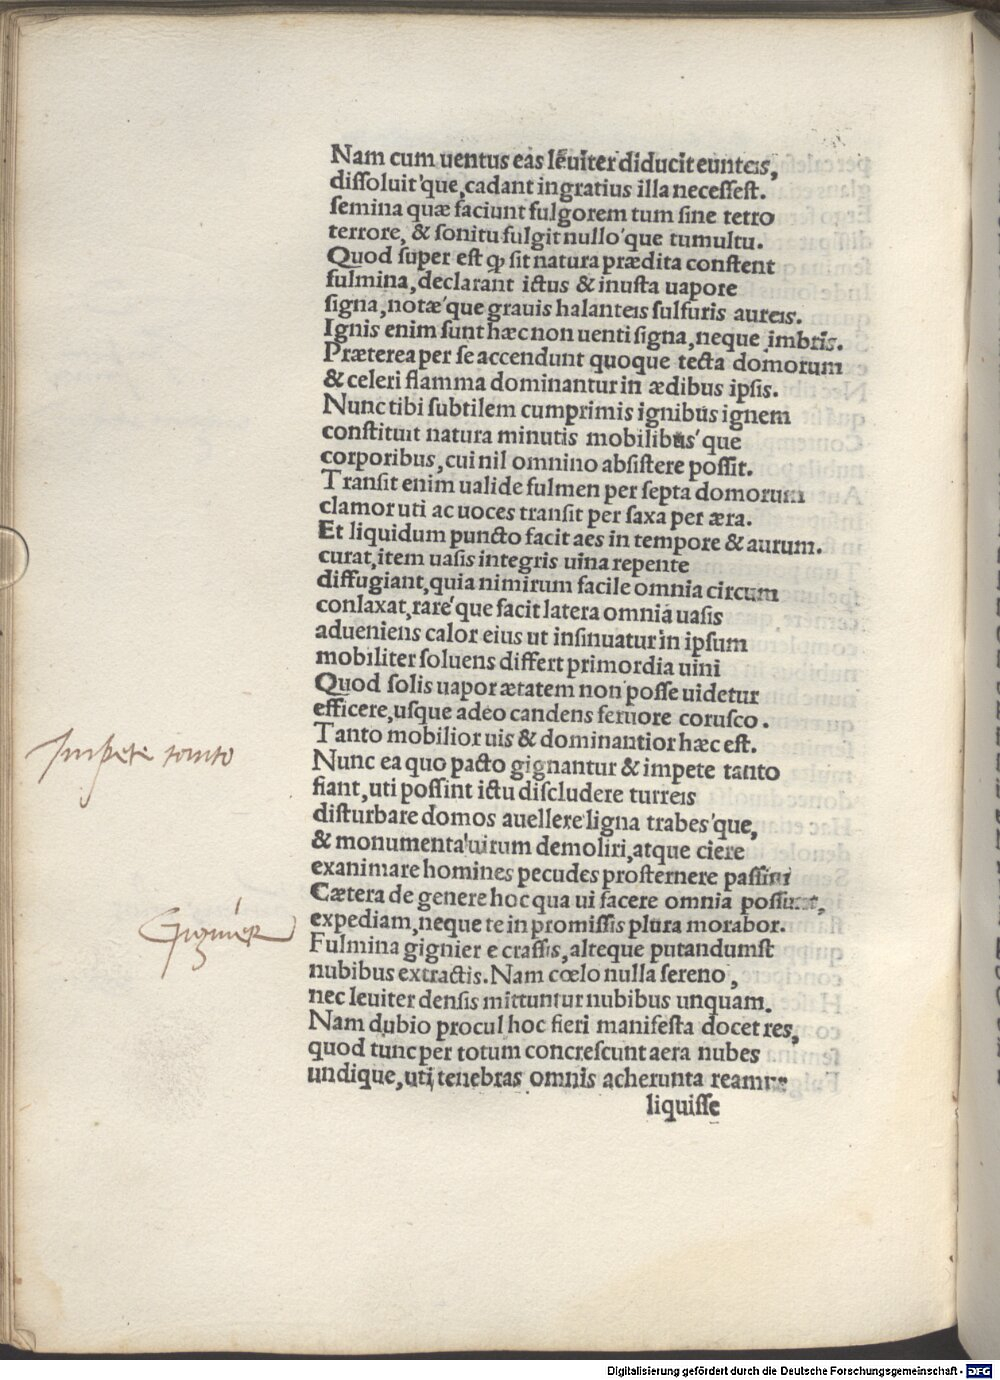 Nam cum uentus eas leuiter diducit eunteis,
dissoluit'que, cadant ingratius illa necessest.
semina quæ faciunt fulgorem tum sine tetro
terrore, & sonitu fulgit nullo'que tumultu.
Quod super est ꝙ sit natura prædita constent
fulmina, declarant ictus & inusta uapore
signa, notæ'que grauis halanteis sulfuris aureis.
Ignis enim sunt hæc non uenti signa, neque imbris.
Præterea per se accendunt quoque tecta domorum
& celeri flamma dominantur in ædibus ipsis.
Nunc tibi subtilem cumprimis ignibus ignem
constituit natura minutis mobilibus'que
corporibus, cui nil omnino absistere possit.
Transit enim ualide fulmen per septa domorum
clamor uti ac uoces transit per saxa per æra.
Et liquidum puncto facit aes in tempore & aurum.
curat, item uasis integris uina repente
diffugiant, quia nimirum facile omnia circum
conlaxat, rare'que facit latera omnia uasis
adueniens calor eius ut insinuatur in ipsum
mobiliter soluens differt primordia uini
Quod solis uapor ætatem non posse uidetur
efficere, usque adeo candens feruore corusco.
Tanto mobilior uis & dominantior hæc est.
Impete tanto
Nunc ea quo pacto gignantur & impete tanto
fiant, uti possint ictu discludere turreis
disturbare domos auellere ligna trabes'que,
& monumenta uirum demoliri, atque ciere
exanimare homines pecudes prosternere passim
Cætera de genere hoc qua ui facere omnia possunt,
expediam, neque te in promissis plura morabor.
Gignier
Fulmina gignier e crassis, alteque putandumst
nubibus extractis. Nam cœlo nulla sereno,
nec leuiter densis mittuntur nubibus unquam.
Nam dubio procul hoc fieri manifesta docet res,
quod tunc per totum concrescunt aera nubes
undique, uti tenebras omnis acherunta reamus
liquisse
Digitalisierung gefördert durch die Deutsche Forschungsgemeinschaft - DFG